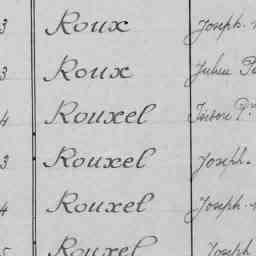 3 Roux Joseph
3 Roux Julien
4 Rouxel
3 Rouxel Joseph
4 Rouxel Joseph
Rouxel Joseph